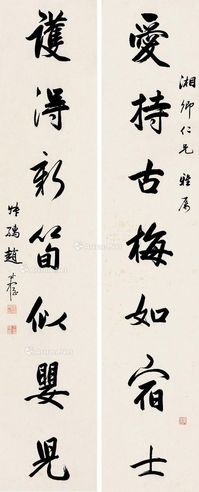 愛持古梅如宿士
湘卿仁兄雅屬
護得新筍似嬰兒
趙